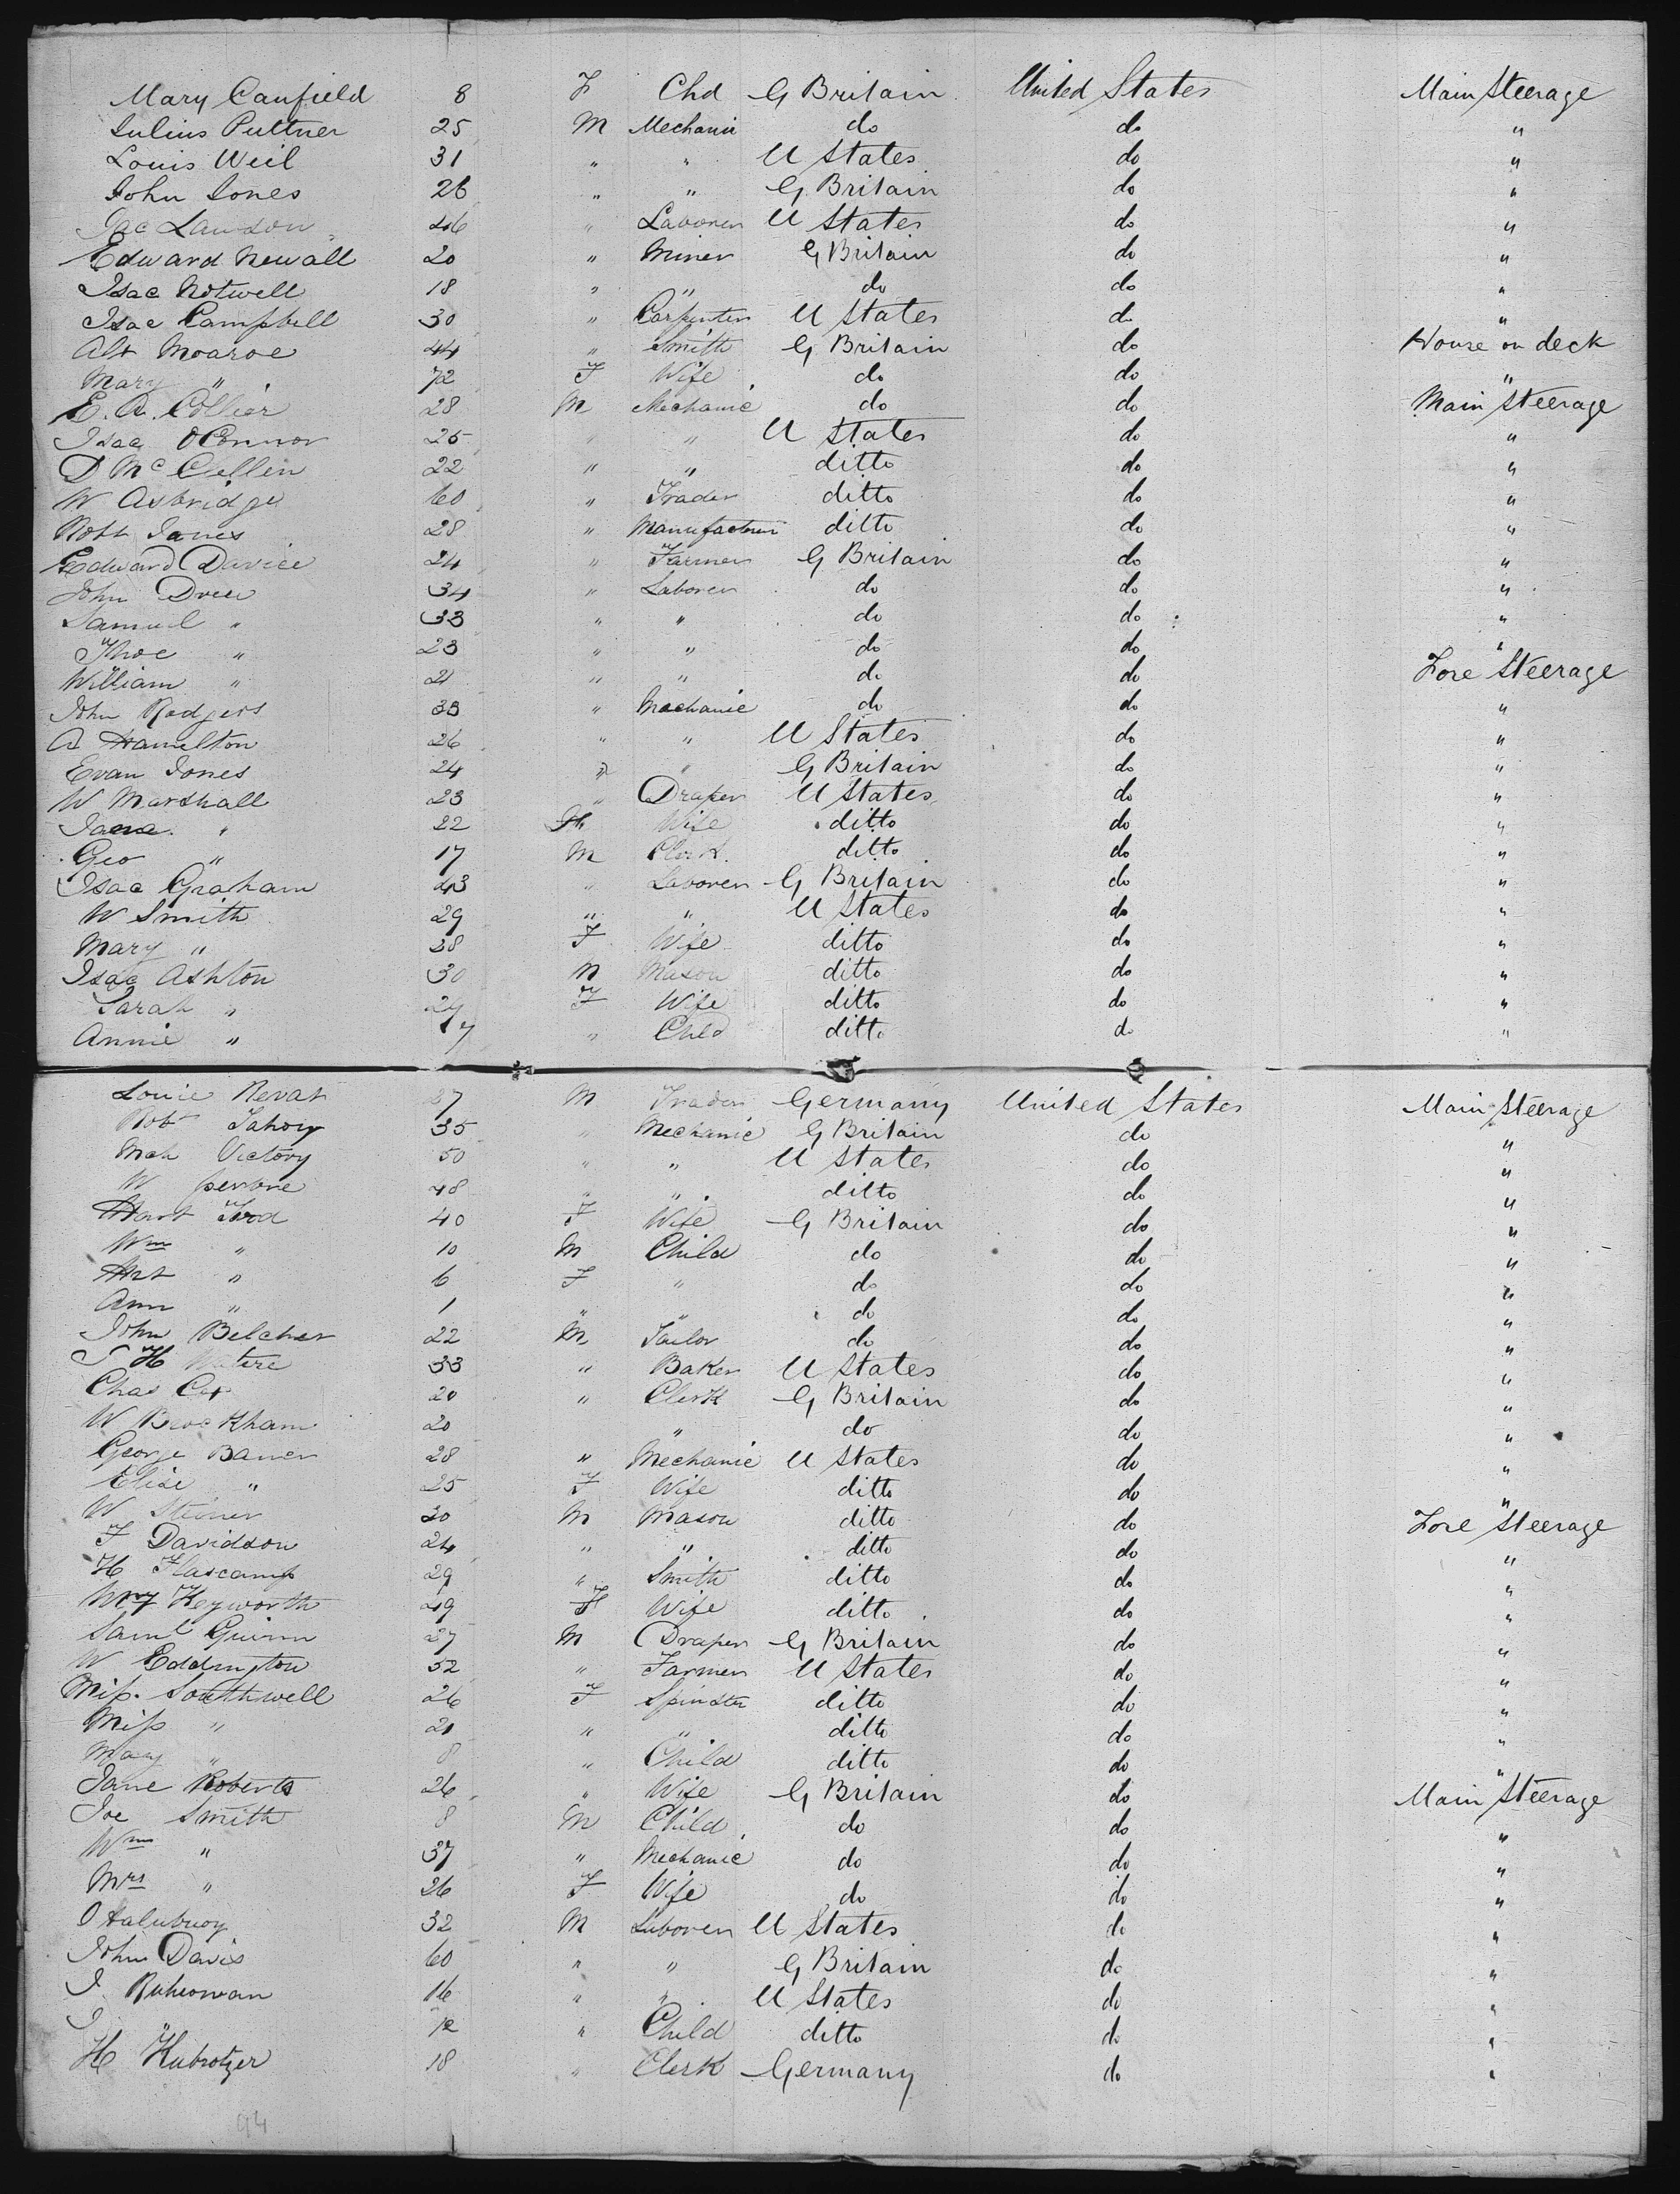 Mary Canfield 8 F Chd G Britain United States Main Steerage
Julius Puttner 25 M Mechanic do do "
Louis Weil 31 " " U States do "
John Jones 26 " " G Britain do "
Jac Lawson 46 " Laborer U States do "
Edward Newall 20 " Miner G Britain do "
Isac Notwell 18 " " do do "
Isac Campbell 30 " Carpenter U States do "
Alx Monroe 44 " Smith G Britain do House on deck
Mary " 72 F Wife do do "
E. A. Collier 28 M Mechanic do do Main Steerage
Isac OConnor 25 " " U States do "
D Mc Cellin 22 " " ditto do "
W Asbridge 60 " Trader ditto do "
Robt Janes 28 " Manufacturer ditto do "
Edward Davice 24 " Farmer G Britain do "
John Drew 34 " Laborer do do "
Samuel " 33 " " do do "
Thoe " 23 " " do do "
William " 21 " " do do Fore Steerage
John Rodgers 33 " Mechanic do do "
A Hamelton 26 " " U States do "
Evan Jones 24 " " G Britain do "
W Marshall 23 " Draper U States do "
Jane " 22 Wife ditto do "
Geo " 17 M Clerk ditto do "
Isac Graham 43 " Laborer G Britain do "
W Smith 29 " " U States do "
Mary " 28 F Wife ditto do "
Isac Ashton 30 M Mason ditto do "
Sarah " 24 F Wife ditto do "
Annie " " Child ditto do "
Louie 27 M Trader Germany United States Main Steerage
Rob Tahoy 35 " Mechanic G Britain do "
Mch Victory 50 " " U States do "
W 48 " " ditto do "
40 F Wife G Britain do "
Wm " 10 M Child do do "
" 6 F " do do "
Ann " 1 " " do do "
John Belcher 22 M Tailor do do "
H 33 " Baker U States do "
Chas Cox 20 " Clerk G Britain do "
W Brockham 20 " do do "
George Bauer 28 " Mechanic U States do "
Elise " 25 F Wife ditto do "
W Steiner 30 M Mason ditto do Fore Steerage
F Davidson 24 " " ditto do "
H Flascamp 29 " Smith ditto do "
Mry Keyworth 49 F Wife ditto do "
Saml Guinn 27 M Draper G Britain do "
W Eddington 52 " Farmer U States do "
Miss. Southwell 26 F Spinster ditto do "
Miss " 21 " " ditto do "
Mary " 8 " Child ditto do "
Jane Roberts 26 " Wife G Britain do Main Steerage
Joe Smith 8 M Child do do "
Wm " 37 " Mechanic do do "
Mrs " 26 F Wife do do "
O 32 M Laborer U States do "
John Davis 60 " " G Britain do "
J 16 " " U States do "
J " " Child ditto do "
H Hubrotzer 18 " Clerk Germany do "
94